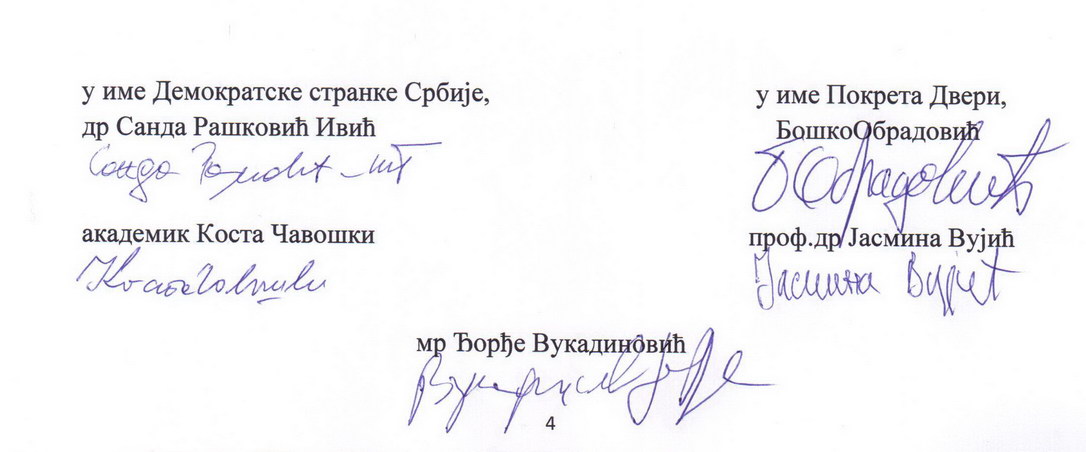 у име Демократске странке Србије,
др Санда Рашковић Ивић
у име Покрета Двери,
БошкоОбрадовић
Б Обрадовић
академик Коста Чавошки
Коста Чавошки
проф.др Јасмина Вујић
Јасмина Вујић
мр Ђорђе Вукадиновић
4